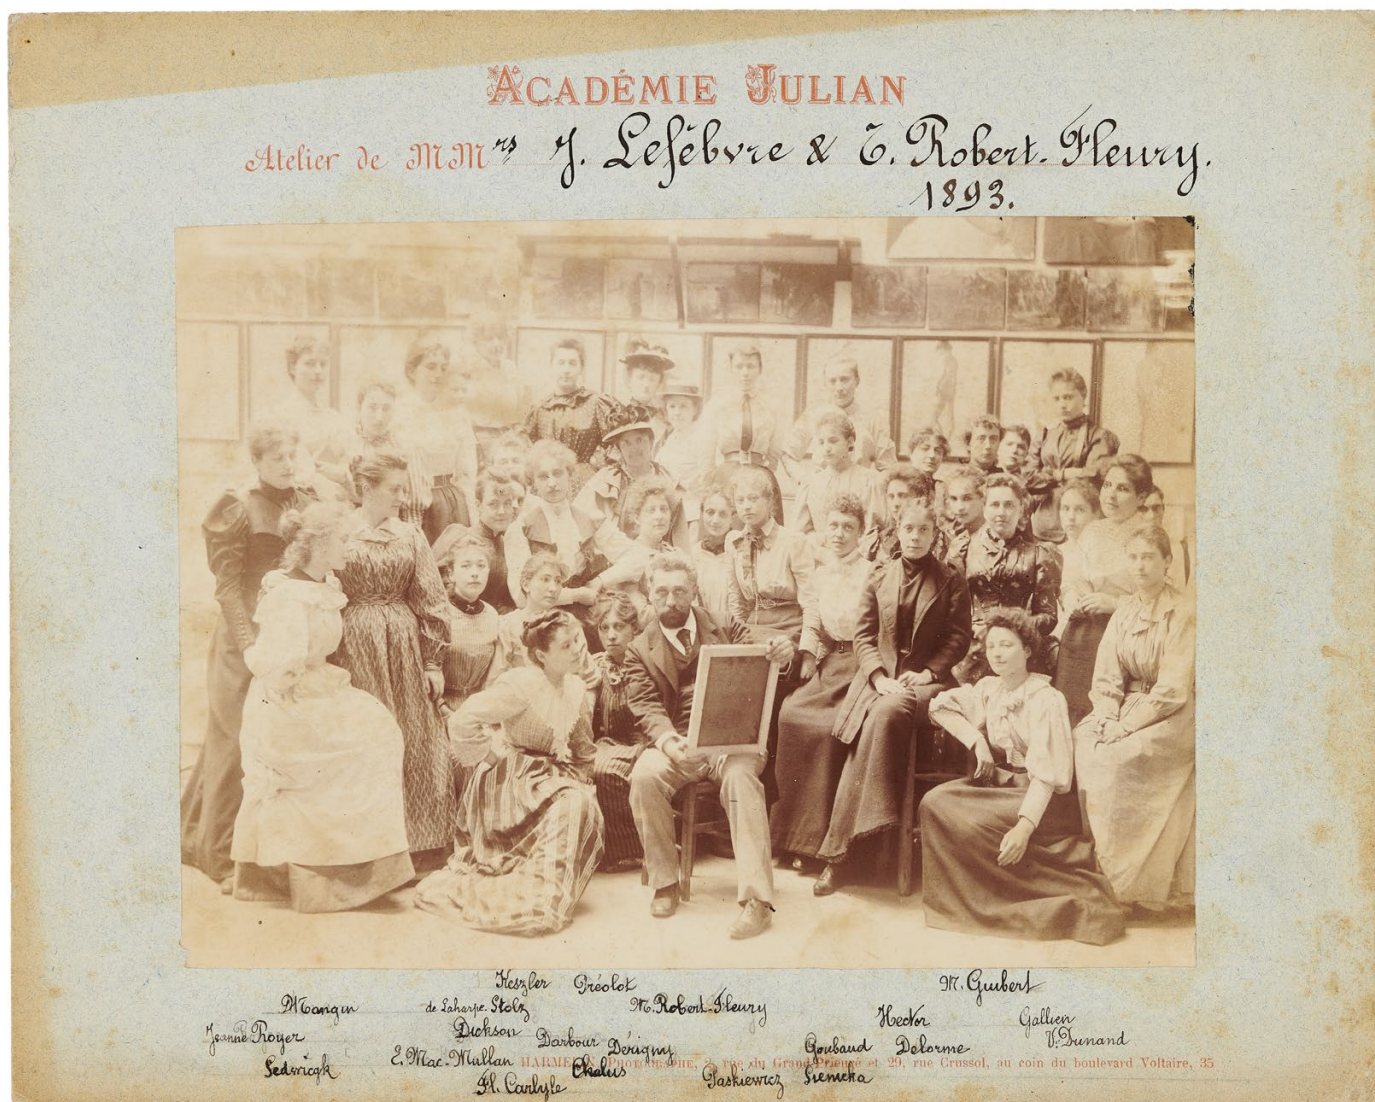 ACADÉMIE JULIAN
Atelier de MMrs J. Lefébvre & T. Robert-Fleury.
1893.
Keszler Préolot M. Guibert
Mangin de Laharpe. Stolz M. Robert-Fleury Hector Gallien
Jeanne Royer Dickson Darbour Dérigny Goubaud Delorme V. Dunand
Sedwicgk E. Mac-Mullan Chalus
HARMELIN, PHOTOGRAPHE, rue du Grand-Prieuré et 29, rue Crussol, au coin du boulevard Voltaire, 35
Fl. Carlyle Paskiewicz Sienicka